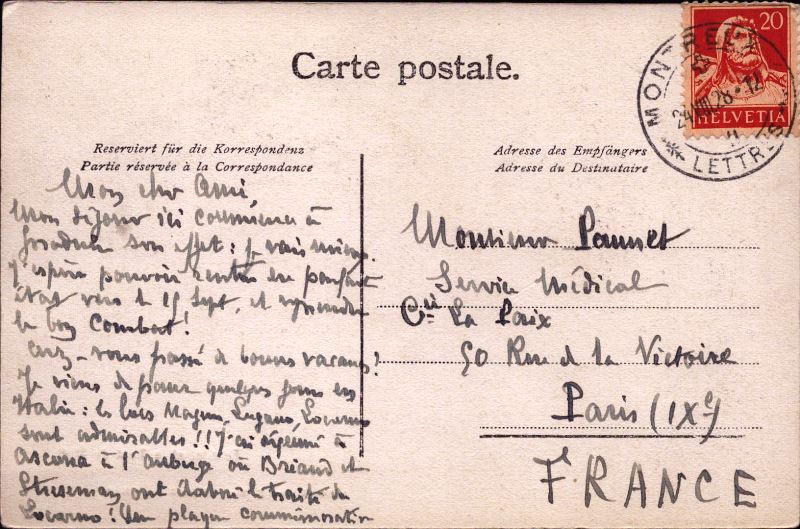 Carte postale.
20
HELVETIA
MONTREUX
24.VIII.28.-12
LETTRES
Reserviert für die Korrespondenz
Partie réservée à la Correspondance
Adresse des Empfängers
Adresse du Destinataire
Mon cher Ami,
Mon séjour ici commence à
produire son effet: je vais mieux.
J'espère pouvoir rentrer en parfait
état vers le 15 Sept. et reprendre
le bon combat!
Avez-vous passé de bonnes vacances?
Je viens de passer quelques jours en
Italie: les lacs Majeur, Lugano, Locarno
sont admirables!! J'ai déjeuné à
Ascona à l'auberge où Briand et
Stresemann ont élaboré le traité de
Locarno! Une plaque commémorative
Monsieur
Service Médical
Cie La Paix
50 Rue de la Victoire
Paris (IXe)
FRANCE